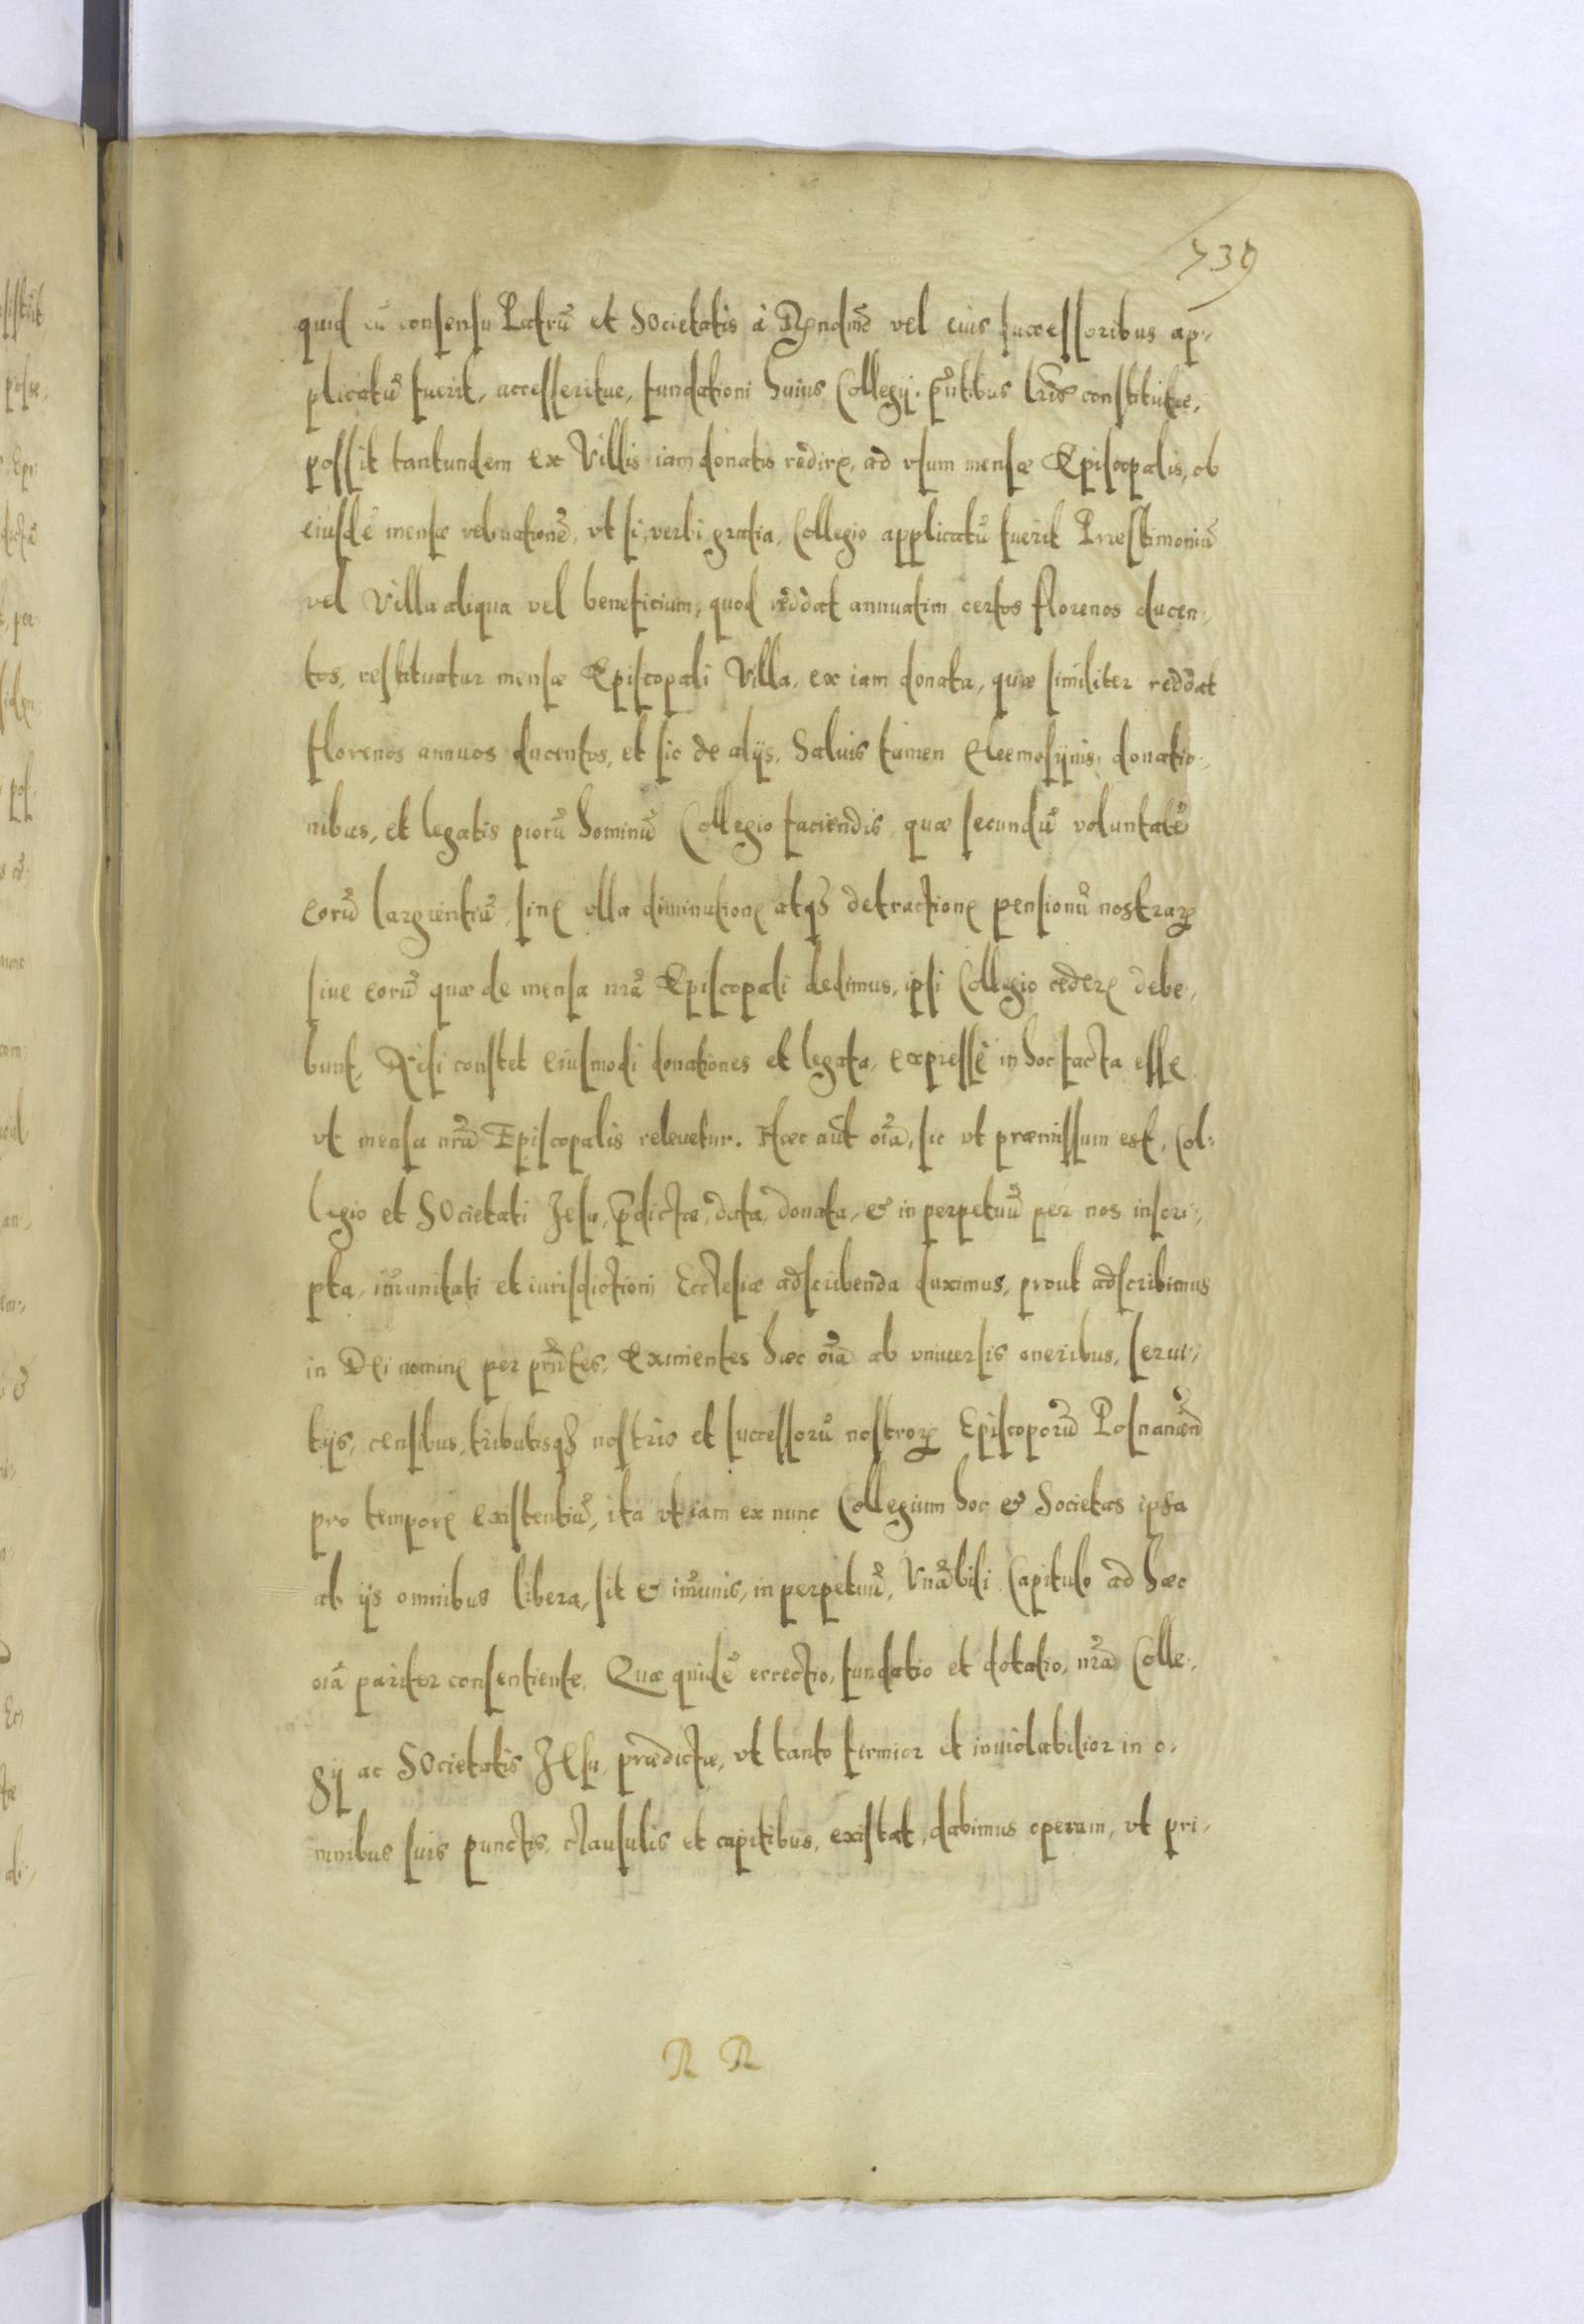 739
quid cū consensu Patrū et Societatis à Rendmo vel eius successoribus ap-
plicatū fuerit, accesseritue, fundationi huius Collegij. pñtibus lrīs constitutæ,
possit tantundem ex Villis iam donatis redire, ad vsum mensæ Episcopalis, ob
eiusdē mensæ releuationē, vt si, verbi gratia, Collegio applicatū fuerit Præstimoniū
vel Villa aliqua vel beneficium, quod reddat annuatim certos florenos ducen-
tos, restituatur mensæ Episcopali Villa, ex iam donata, quæ similiter reddat
florenos annuos ducentos, et sic de alijs. Saluis tamen Eleemosÿnis, donatio-
nibus, et legatis piorū hominū Collegio faciendis, quæ secundū voluntatē
eorū largientiū, sine vlla diminutione atqȝ detractione pensionū nostraꝝ
siue eorū quæ de mensa nrā Episcopali dedimus, ipsi Collegio cedere debe-
bunt, Nisi constet eiusmodi donationes et legata, expressè in hoc facta esse
vt mensa nrā Episcopalis releuetur. Hæc aūt oīa, sic vt præmissum est, Col-
legio et SOcietati Jesu, p̄dictæ, data, donata, & in perpetuū per nos inscri-
pta, im̄unitati et iurisdictioni Ecclesiæ adscribenda duximus, prout adscribimus
in DEi nomine per pn̄tes, Eximientes hæc oīa ab vniuersis oneribus, serui-
tijs, censibus, tributisqȝ nostris et successorū nostroꝝ Episcoporū Posnanień
pro tempore existentiū, ita vt iam ex nunc Collegium hoc & Societas ipsa
ab ijs omnibus libera, sit & im̄unis, in perpetuū, Vnābili Capitulo ad hæc
oīa pariter consentiente. Quæ quidē errectio, fundatio et dotatio, nrā Colle-
gij ac SOcietatis JEsu, prædictæ, vt tanto firmior et inuiolabilior in o-
mnibus suis punctis, clausulis et capitibus, existat, dabimus operam, vt pri-
R R